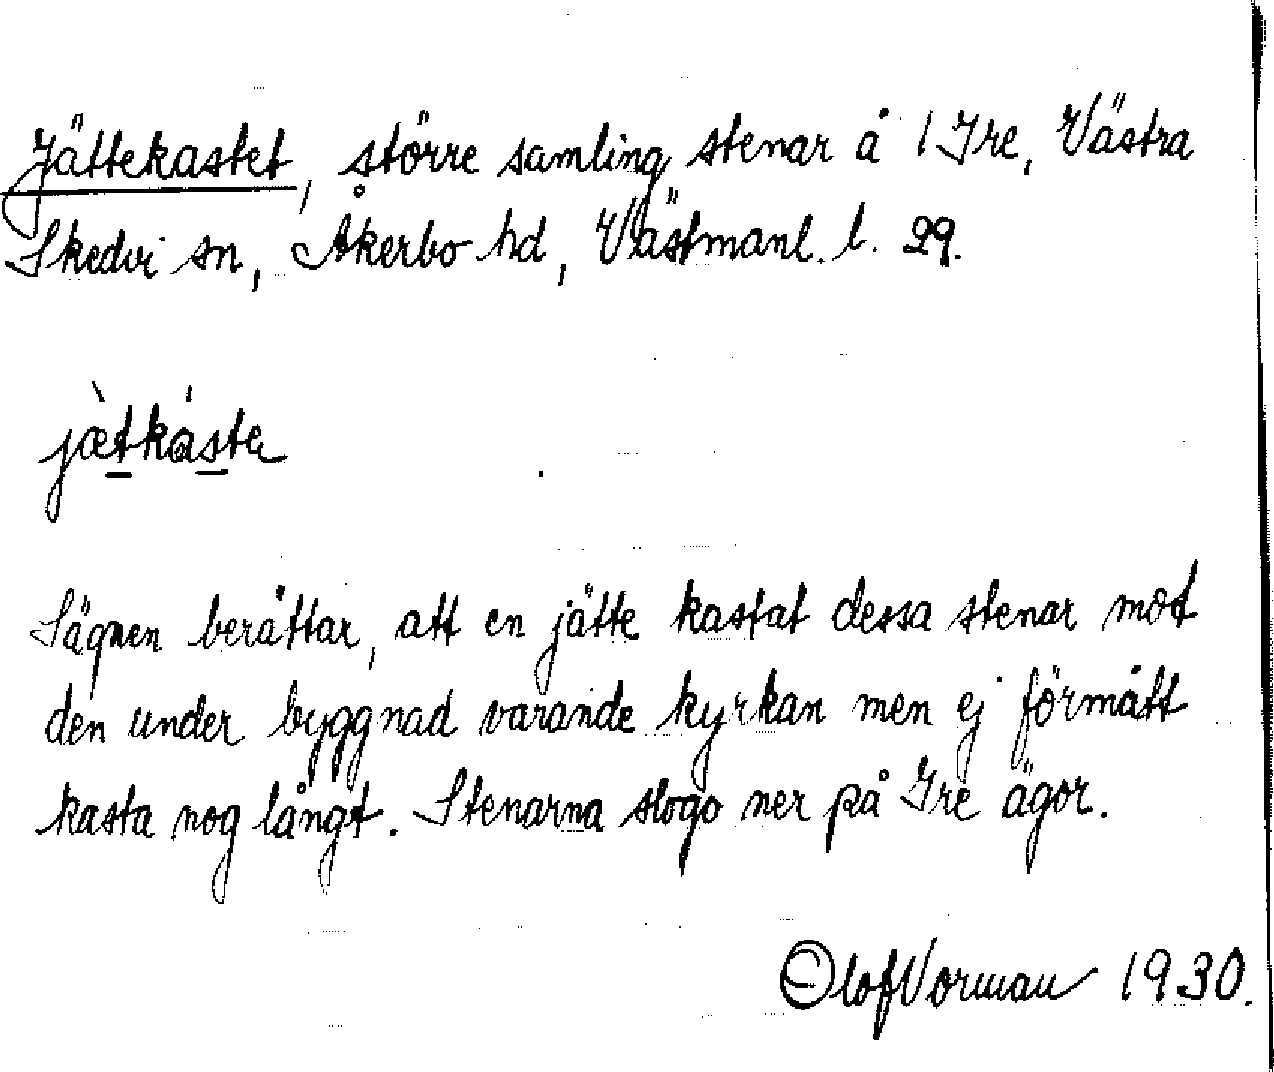 Jättekastet, större samling stenar å 1 Ire, Västra
Skedvi sn, Åkerbo hd, Västmanl. l. 29.
jætkaste
Sägnen berättar, att en jätte kastat dessa stenar mot
den under byggnad varande kyrkan men ej förmått
kasta nog långt. Stenarna slogo ner på Ire ägor.
Olof Vorman 1930.